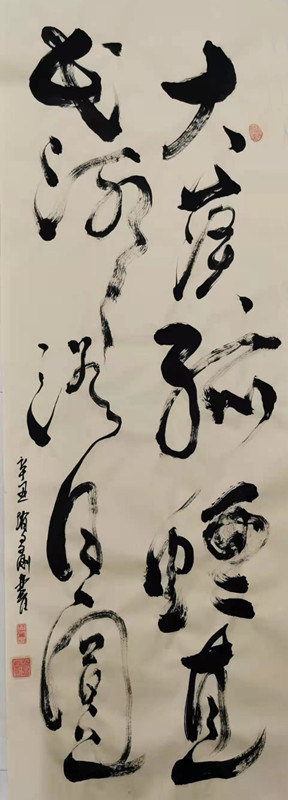 大漠孤煙直
長河落日圓
辛丑 書